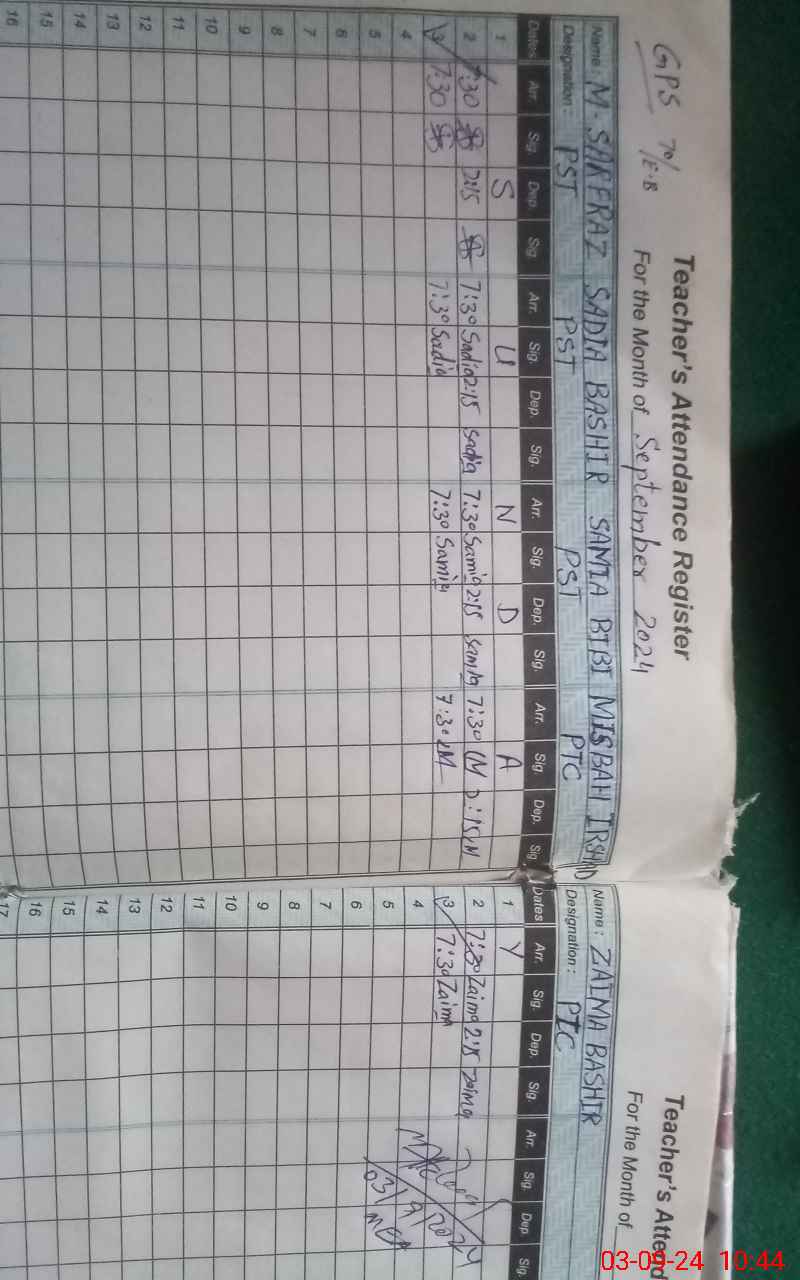 GPS 70/E.B
Teacher's Attendance Register
For the Month of September 2024
Name: M. SARFRAZ SADIA BASHIR SAMIA BIBI MISBAH IRSHAD
Designation: PST PST PST PTC
Dates Arr. Sig. Dep. Sig. Arr. Sig. Dep. Sig. Arr. Sig. Dep. Sig. Arr. Sig. Dep. Sig.
1 S U N D A
2 7:30 2:15 7:30 Sadia 2:15 Sadia 7:30 Samia 2:15 Samia 7:30 2:15
3 7:30 7:30 Sadia 7:30 Samia 7:30
4
5
6
7
8
9
10
11
12
13
14
15
16
Teacher's Attend
For the Month of
Name: ZAIMA BASHIR
Designation: PTC
Dates Arr. Sig. Dep. Sig. Arr. Sig. Dep. Sig.
1 Y
2 7:30 Zaima 2:15 Zaima
3 7:30 Zaima
4
5
6
7
8
9
10
11
12
13
14
15
16
17
03/9/2024
MEA
03-09-24 10:44